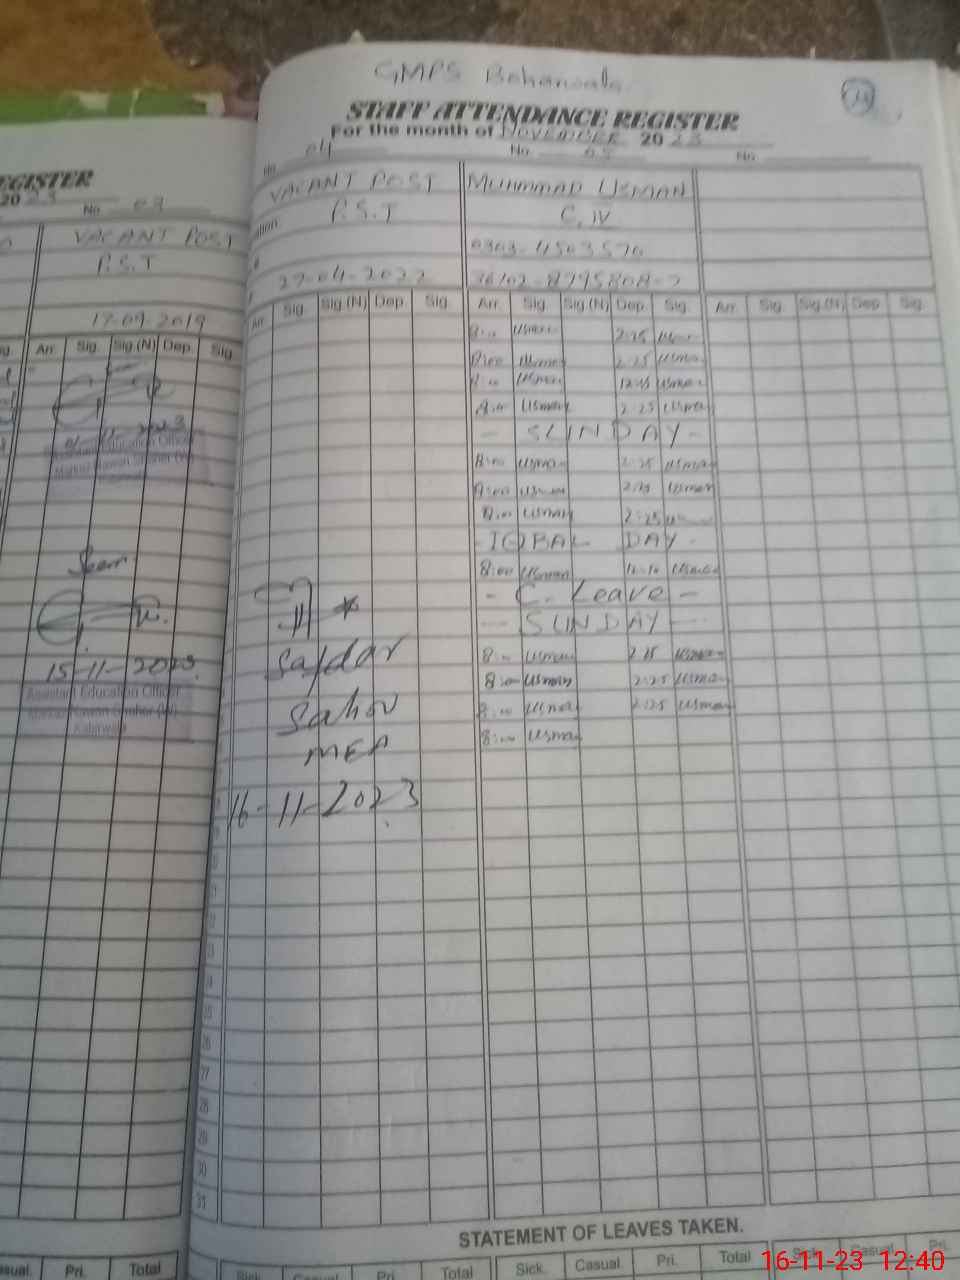 GMPS Baharwala
14
STAFF ATTENDANCE REGISTER
For the month of NOVEMBER 2023
No. 04 No. 05 No.
VACANT POST MUHMMAD USMAN
P.S.T C.IV
0303-4503570
27-04-2022
Arr. Sig. Sig.(N) Dep. Sig. Arr. Sig. Sig.(N) Dep. Sig. Arr. Sig. Sig.(N) Dep. Sig.
8:00 Usman 2:25 Usman
8:00 Usman 2:25 Usman
8:00 Usman 12:15 Usman
8:00 Usman 2:25 Usman
- SUNDAY -
8:00 Usman 2:25 Usman
8:00 Usman 2:25 Usman
8:00 Usman 2:25
- IQBAL DAY -
8:00 Usman Usman
- C. Leave -
- SUNDAY -
8:00 Usman 2:25 Usman
8:00 Usman 2:25 Usman
8:00 Usman 2:25 Usman
8:00 Usman
Safdar
MEA
16-11-2023
27
28
29
30
31
STATEMENT OF LEAVES TAKEN.
Sick. Casual Pri. Total Sick. Casual. Pri. Total Sick. Casual. Pri.
EGISTER
2023
No 03
VACANT POST
P.S.T
17-09-2019
Arr. Sig. Sig.(N) Dep. Sig.
Education Officer
15-11-2023
Assistant Education Officer
asual. Pri. Total
16-11-23 12:40